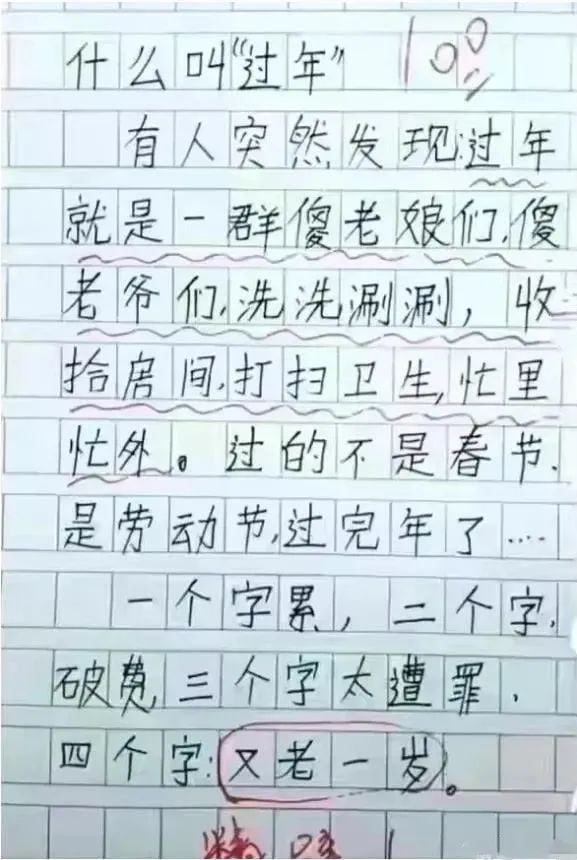 什么叫“过年” 100
有人突然发现:过年
就是一群傻老娘们,傻
老爷们,洗洗涮涮,收
拾房间,打扫卫生,忙里
忙外。过的不是春节.
是劳动节,过完年了....
一个字累,二个字,
破费,三个字太遭罪.
四个字:又老一岁。